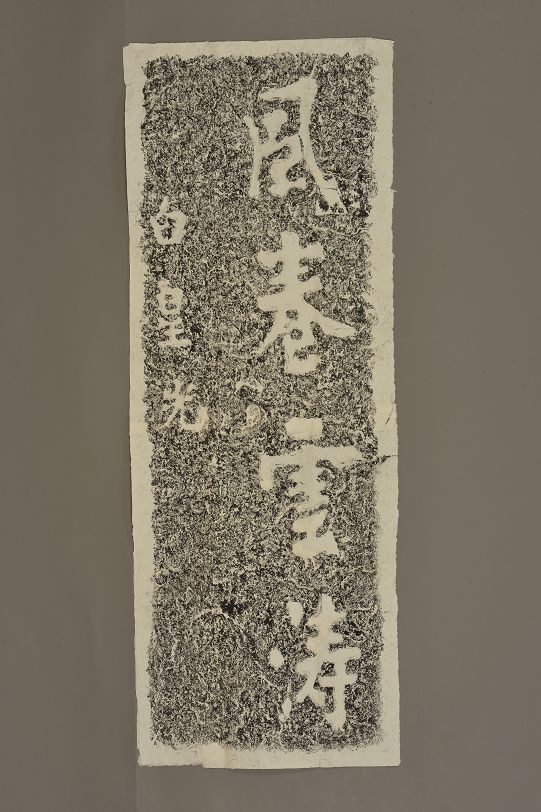 風卷雲涛
白星光